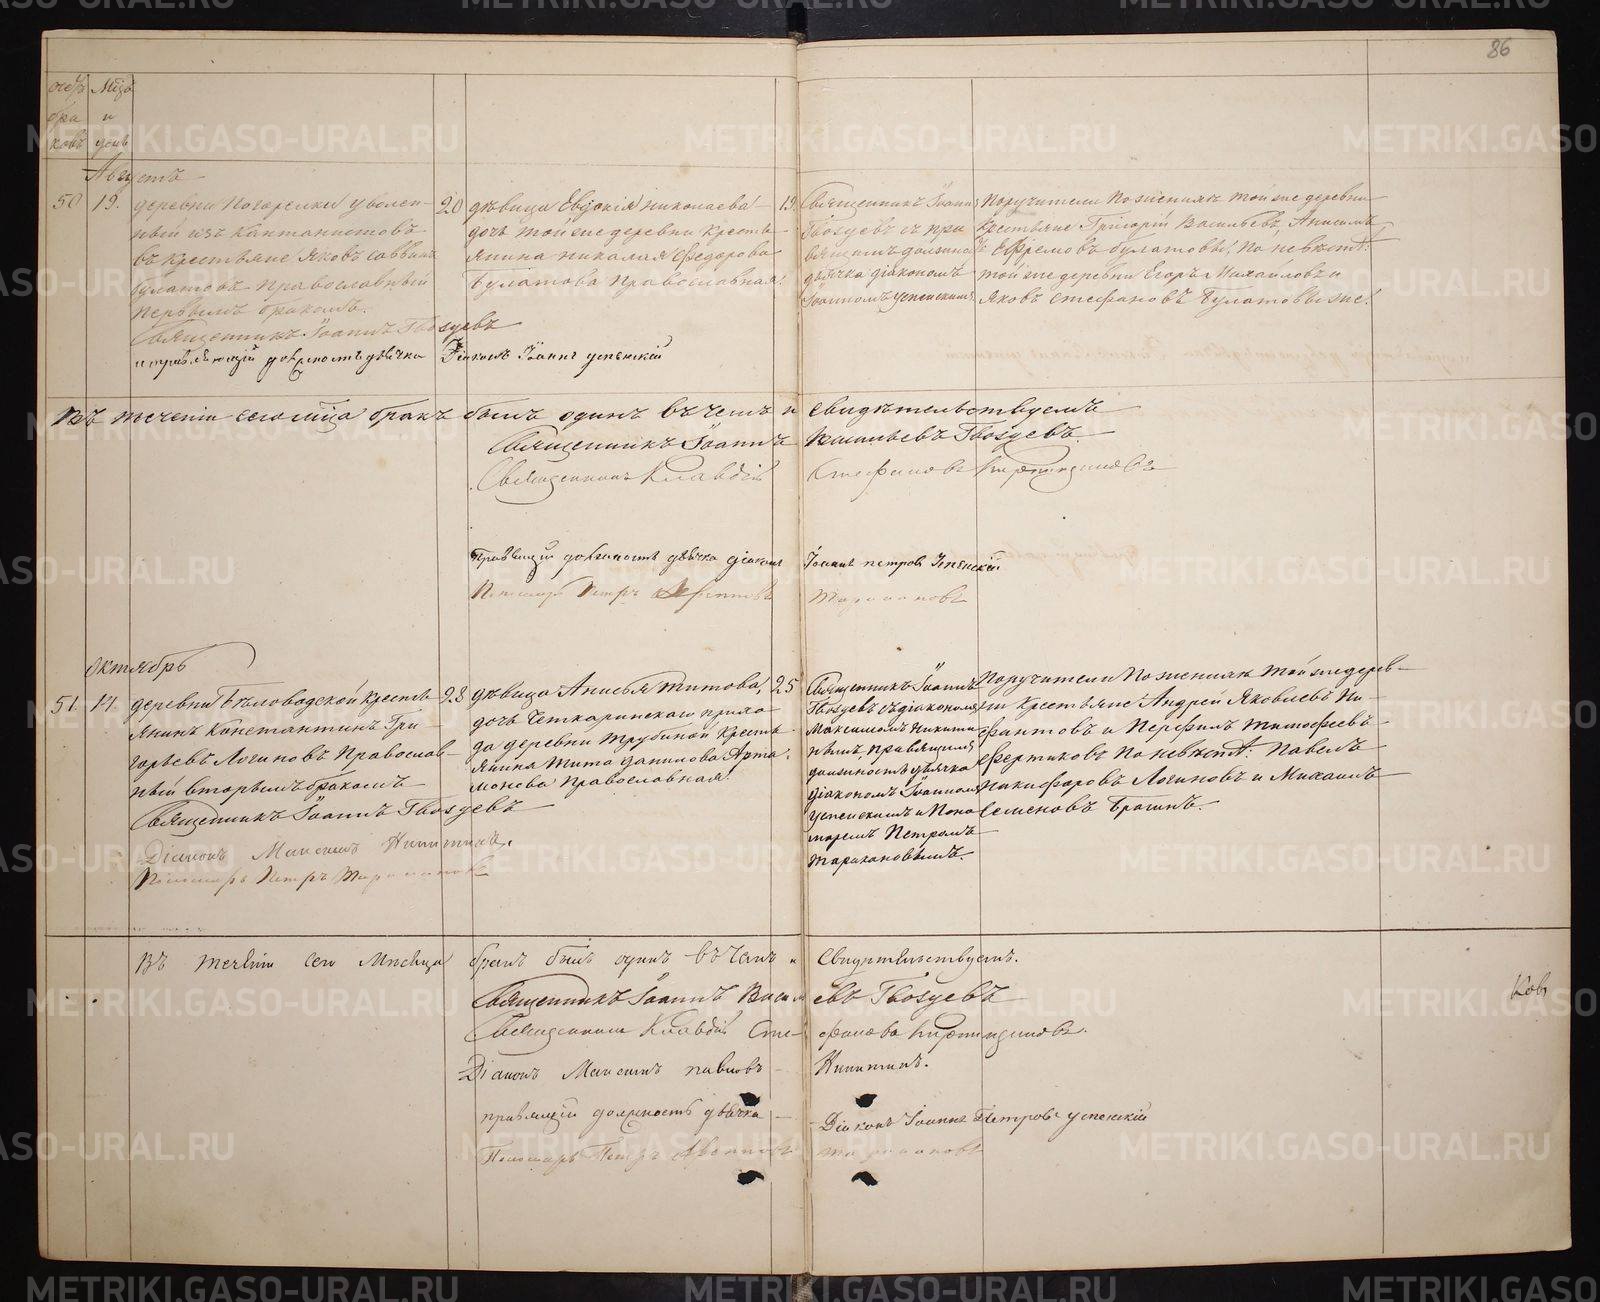 86
счетъ бра ковъ
Мцъ и день
Августъ
50
19.
деревни Погорелки уволен-
ный изъ Кантонистовъ
въ крестьяне Яковъ Саввинъ
Булатовъ Православный
первымъ бракомъ.
Священникъ Іоаннъ Гвоздевъ
исправляющій должность дьячка Діаконъ Іоаннъ Успенскій
20
дѣвица Евдокія Николаева
дочь той же деревни крестья-
янина Николая Федорова
Булатова Православная.
19.
Священникъ Іоаннъ
Гвоздевъ съ пра
вящимъ должно
дьячка діакономъ
Іоанномъ Успенскимъ
Поручители По женихѣ той же деревни
Крестьяне Григорій Васильевъ, Анисимъ
Ефремовъ Булатовы; По невѣстѣ:
той же деревни Егоръ Михайловъ и
Яковъ Стефановъ Булатовы же.
Въ теченіи сего мѣца бракъ былъ одинъ въ чемъ и свидѣтельствуемъ
Священникъ Іоаннъ Васильевъ Гвоздевъ.
Священникъ Клавдій Стефановъ
Правящій должность дьячка діаконъ Іоаннъ Петровъ Успенскій
Пономарь Петръ Таракановъ
Октябрь
51
14.
деревни Бѣловодской крестья-
янинъ Константинъ Гри-
горьевъ Логиновъ Православ-
ный вторымъ бракомъ
Священникъ Іоаннъ Гвоздевъ
Діаконъ Максимъ Никитинъ.
Пономарь Петръ Таракановъ
28
дѣвица Анисья Титова,
дочь Четкаринскаго прихо-
да деревни Трубиной крестья-
янина Тита Данилова Арта-
монова Православная.
25
Священникъ Іоаннъ
Гвоздевъ съ діакономъ
Максимомъ Никити
нымъ, правящимъ
должность дьячка
діакономъ Іоанномъ
Успенскимъ и Поно
маремъ Петромъ
Таракановымъ.
Поручители По женихѣ той же дерев-
ни Крестьяне Андрей Яковлевъ
и Перфилъ Тимофеевъ
По невѣстѣ: Павелъ
Никифоровъ Логиновъ и Михаилъ
Семеновъ Брагинъ.
Въ теченіи сего Мѣсяца бракъ былъ одинъ въ чемъ и свидѣтельствуемъ.
Священникъ Іоаннъ Васильевъ Гвоздевъ
Священникъ Клавдій Стефановъ
Діаконъ Максимъ Павловъ Никитинъ.
правящій должность дьячка Діаконъ Іоаннъ Петровъ Успенскій
Пономарь Петръ Таракановъ
METRIKI.GASO-URAL.RU